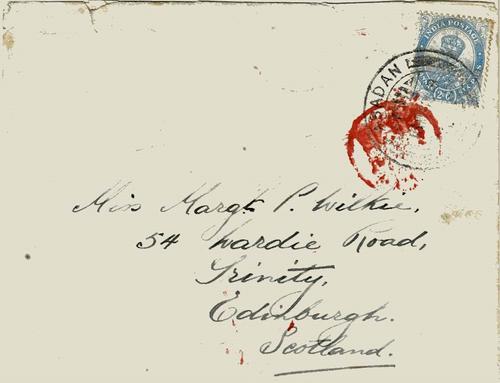 INDIA POSTAGE
Miss Margt. P. Wilkie,
54 Wardie Road,
Trinity,
Edinburgh.
Scotland.